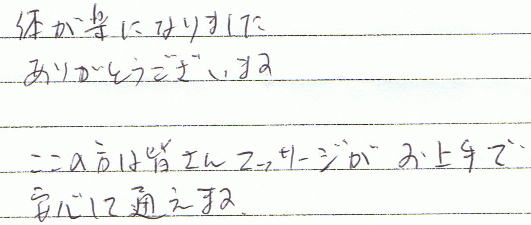 体が楽になりました
ありがとうございます
ここの方は皆さんマッサージがお上手で
安心して通えます